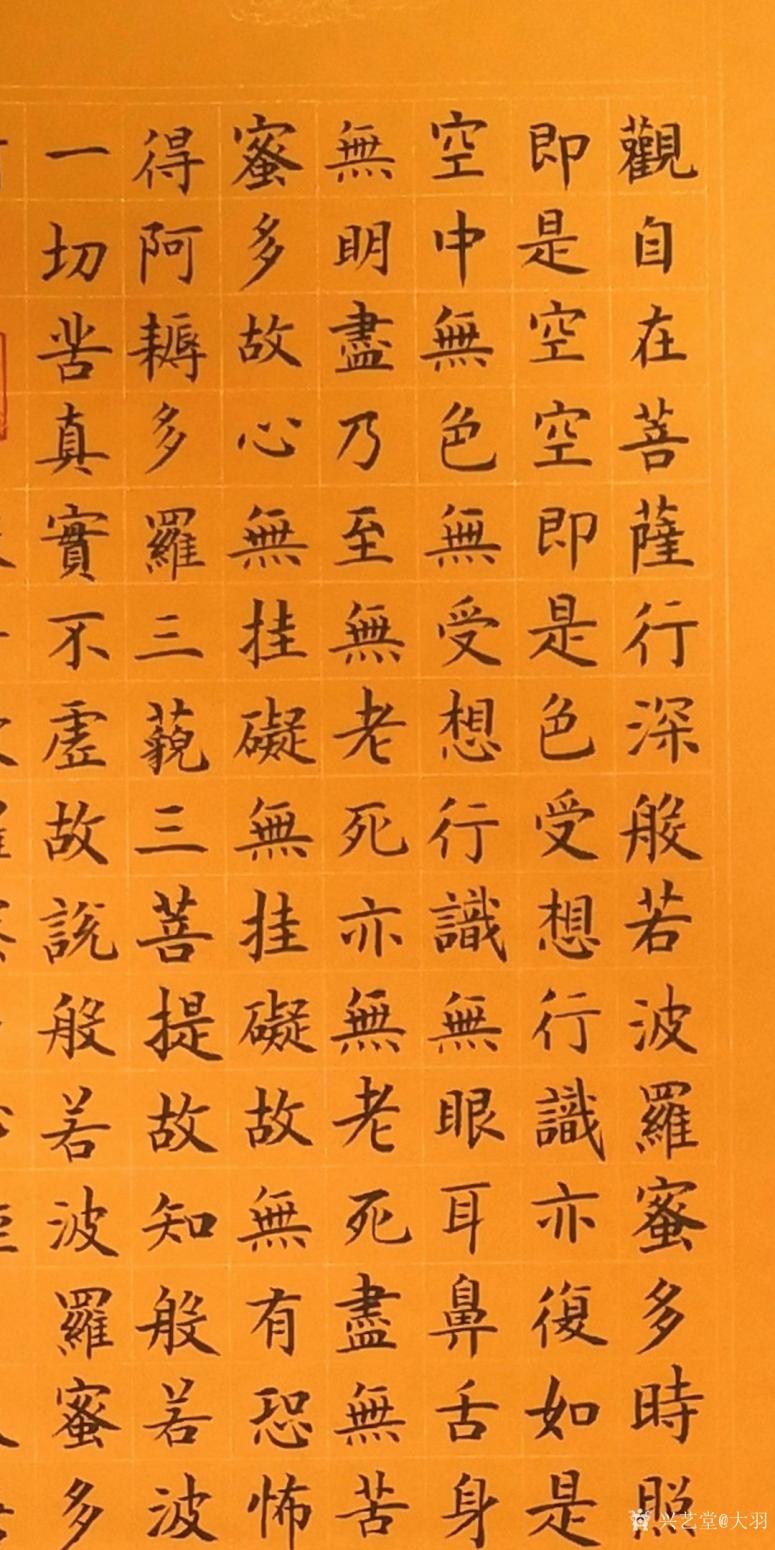 觀自在菩薩行深般若波羅蜜多時照
即是空空即是色受想行識亦復如是
空中無色無受想行識無眼耳鼻舌身
無明盡乃至無老死亦無老死盡無苦
蜜多故心無挂礙無挂礙故無有恐怖
得阿耨多羅三藐三菩提故知般若波
一切苦真實不虛故說般若波羅蜜多
兴艺堂@大羽